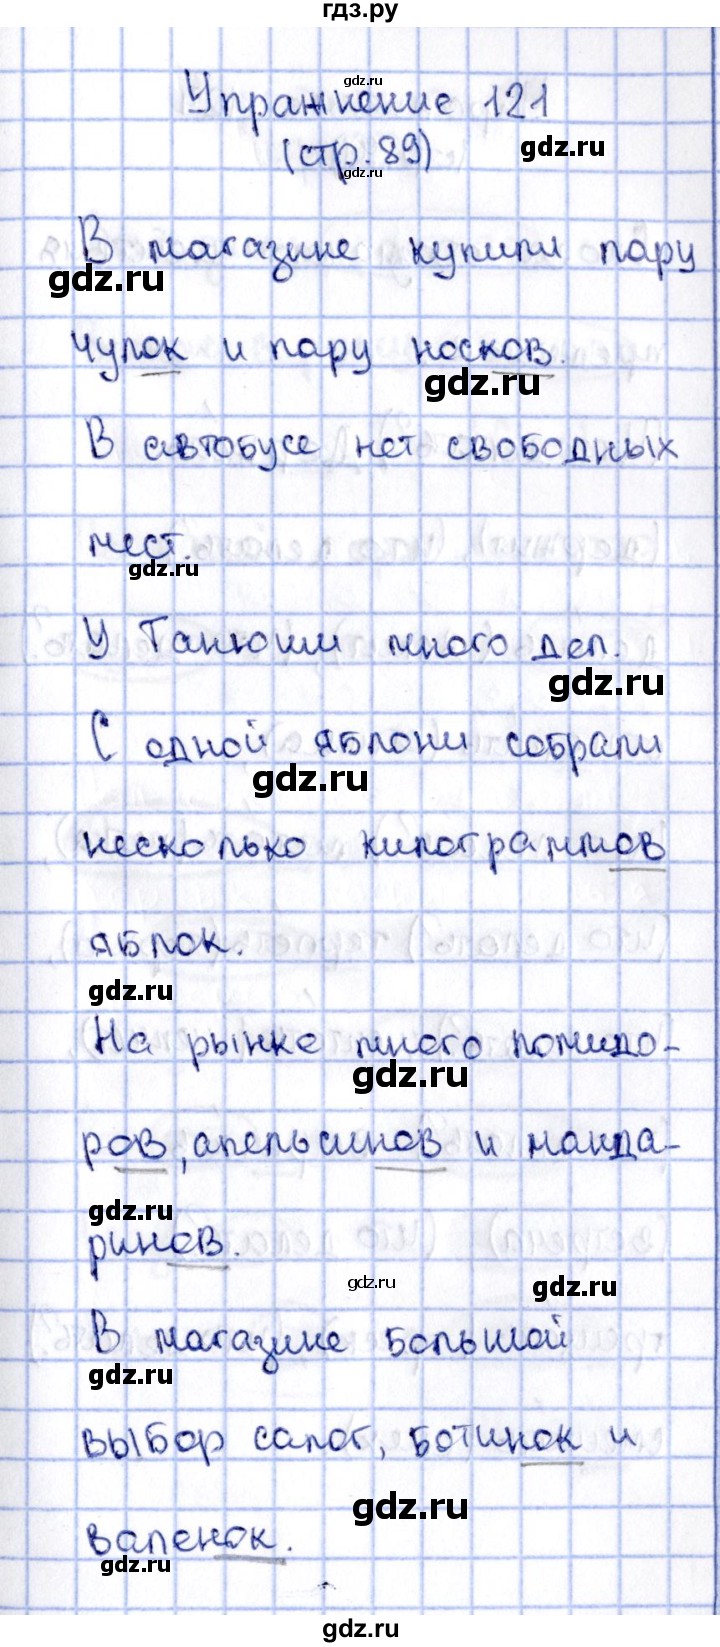 гдз.ру
gdz.ru
Упражнение 121
gdz.ru
(стр. 89)
gdz.ru
В магазине купили пару
gdz.ru
чулок и пару носков.
gdz.ru
В автобусе нет свободных
мест.
gdz.ru
У Танюши много дел.
gdz.ru
С одной яблони собрали
gdz.ru
несколько килограммов
яблок.
gdz.ru
На рынке много помидо-
gdz.ru
ров, апельсинов и манда-
gdz.ru
ринов.
gdz.ru
gdz.ru
В магазине большой
gdz.ru
выбор сапог, ботинок и
gdz.ru
валенок.
gdz.ru
gdz.ru